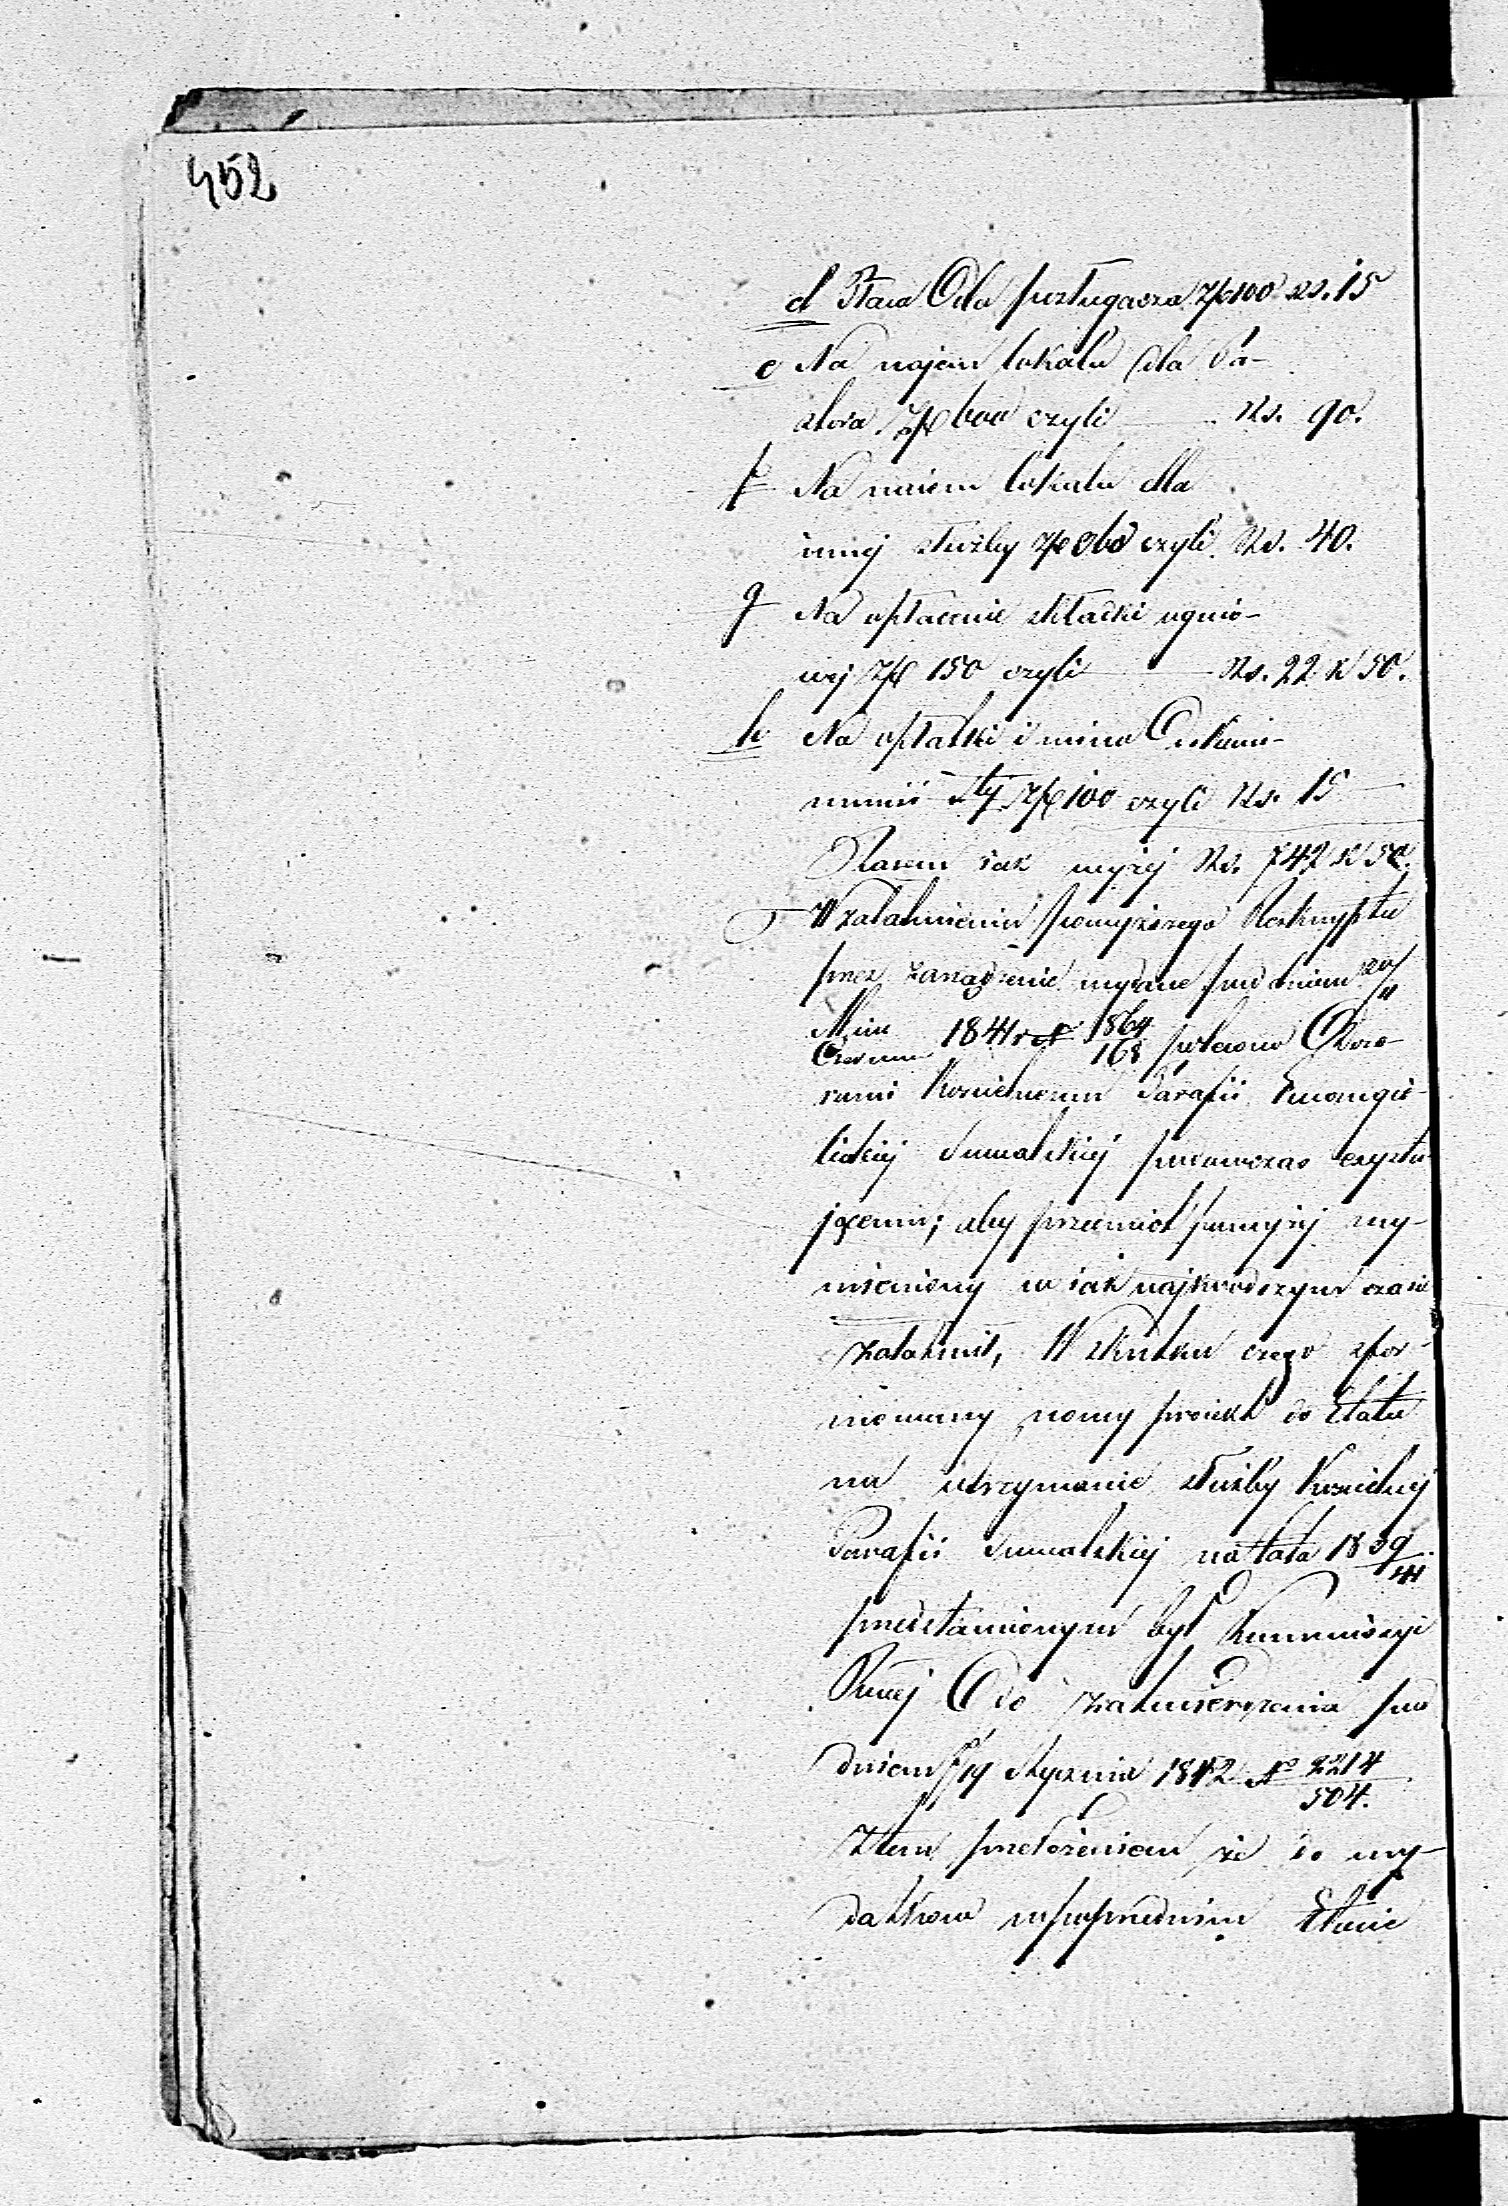 452
d Płaca Dla posługacza Zł 100 rs. 15
e Na najem lokalu dla Pa-
stora Zł 600 czyli Rs. 90.
f Na najem lokalu dla
innej służby Zł czyli Rs. 40.
g Na opłacenie składki ognio-
wej Zł 150 czyli Rs. 22 k 50.
h Na opłatki i wino Do Komu-
nunii Stej Zł 100 czyli Rs. 15
Razem jak wyżej Rs. 742 k 50.
W załatwieniu powyższego Reskryptu
przez zarządzenie wydane pod dniem
Czerwca 1841 r № 1864/168 polecono Dozo-
rowi Kościelnemu Parafii Ewangie-
lickiej Suwalskiej podówczas exystu-
jącemu; aby przedmiot powyżej wy-
mieniony w jak najkrodszym czasie
załatwił, W skutku czego sfor-
mowany nowy proiekt do Etatu
na utrzymanie służby Kościelnej
Parafii Suwalskiej na lata 1839/41
przedstawionym był Kommissyi
Rząej do zatwierdzenia pod
dniem 7/19 Stycznia 1842 № 2214/504.
Z tem przełożeniem że do wy-
datków w poprzednim Etacie